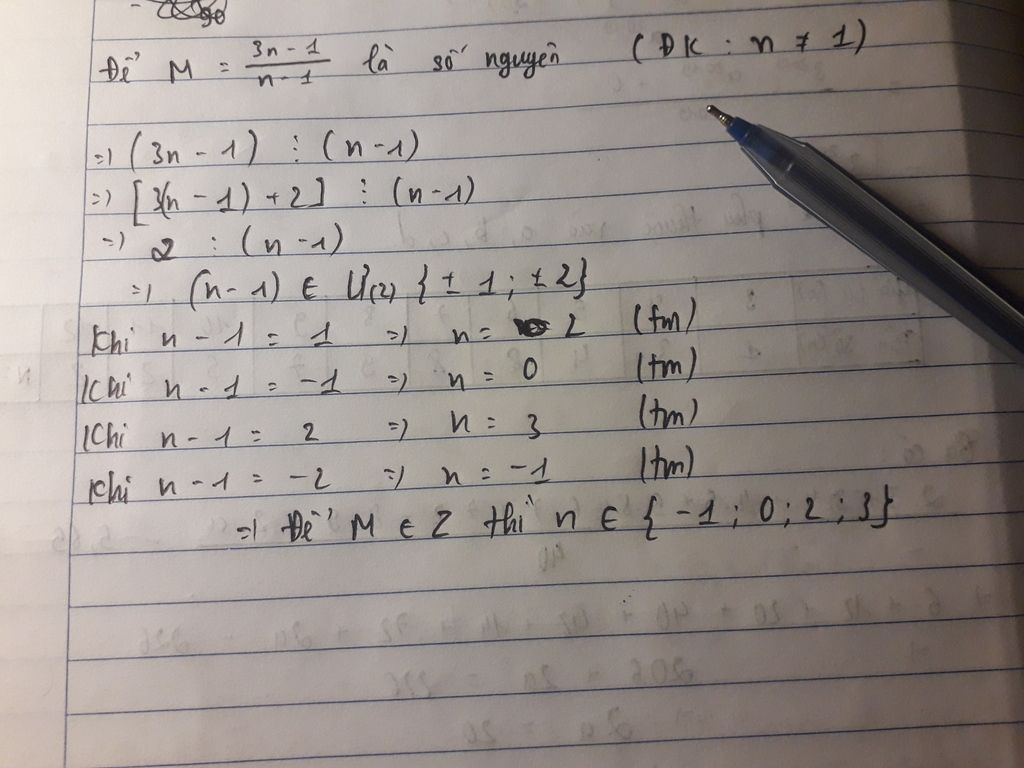 Để M = \frac{3n-1}{n-1} là số nguyên (ĐK : n ≠ 1)
=> (3n - 1) ⋮ (n-1)
=> [3(n - 1) + 2] ⋮ (n-1)
=> 2 ⋮ (n-1)
=> (n-1) ∈ Ư(2) {± 1 ; ± 2}
Khi n - 1 = 1 => n = 2 (tm)
Khi n - 1 = -1 => n = 0 (tm)
Khi n - 1 = 2 => n = 3 (tm)
Khi n - 1 = -2 => n = -1 (tm)
=> Để M ∈ Z thì n ∈ {-1 ; 0 ; 2 ; 3}